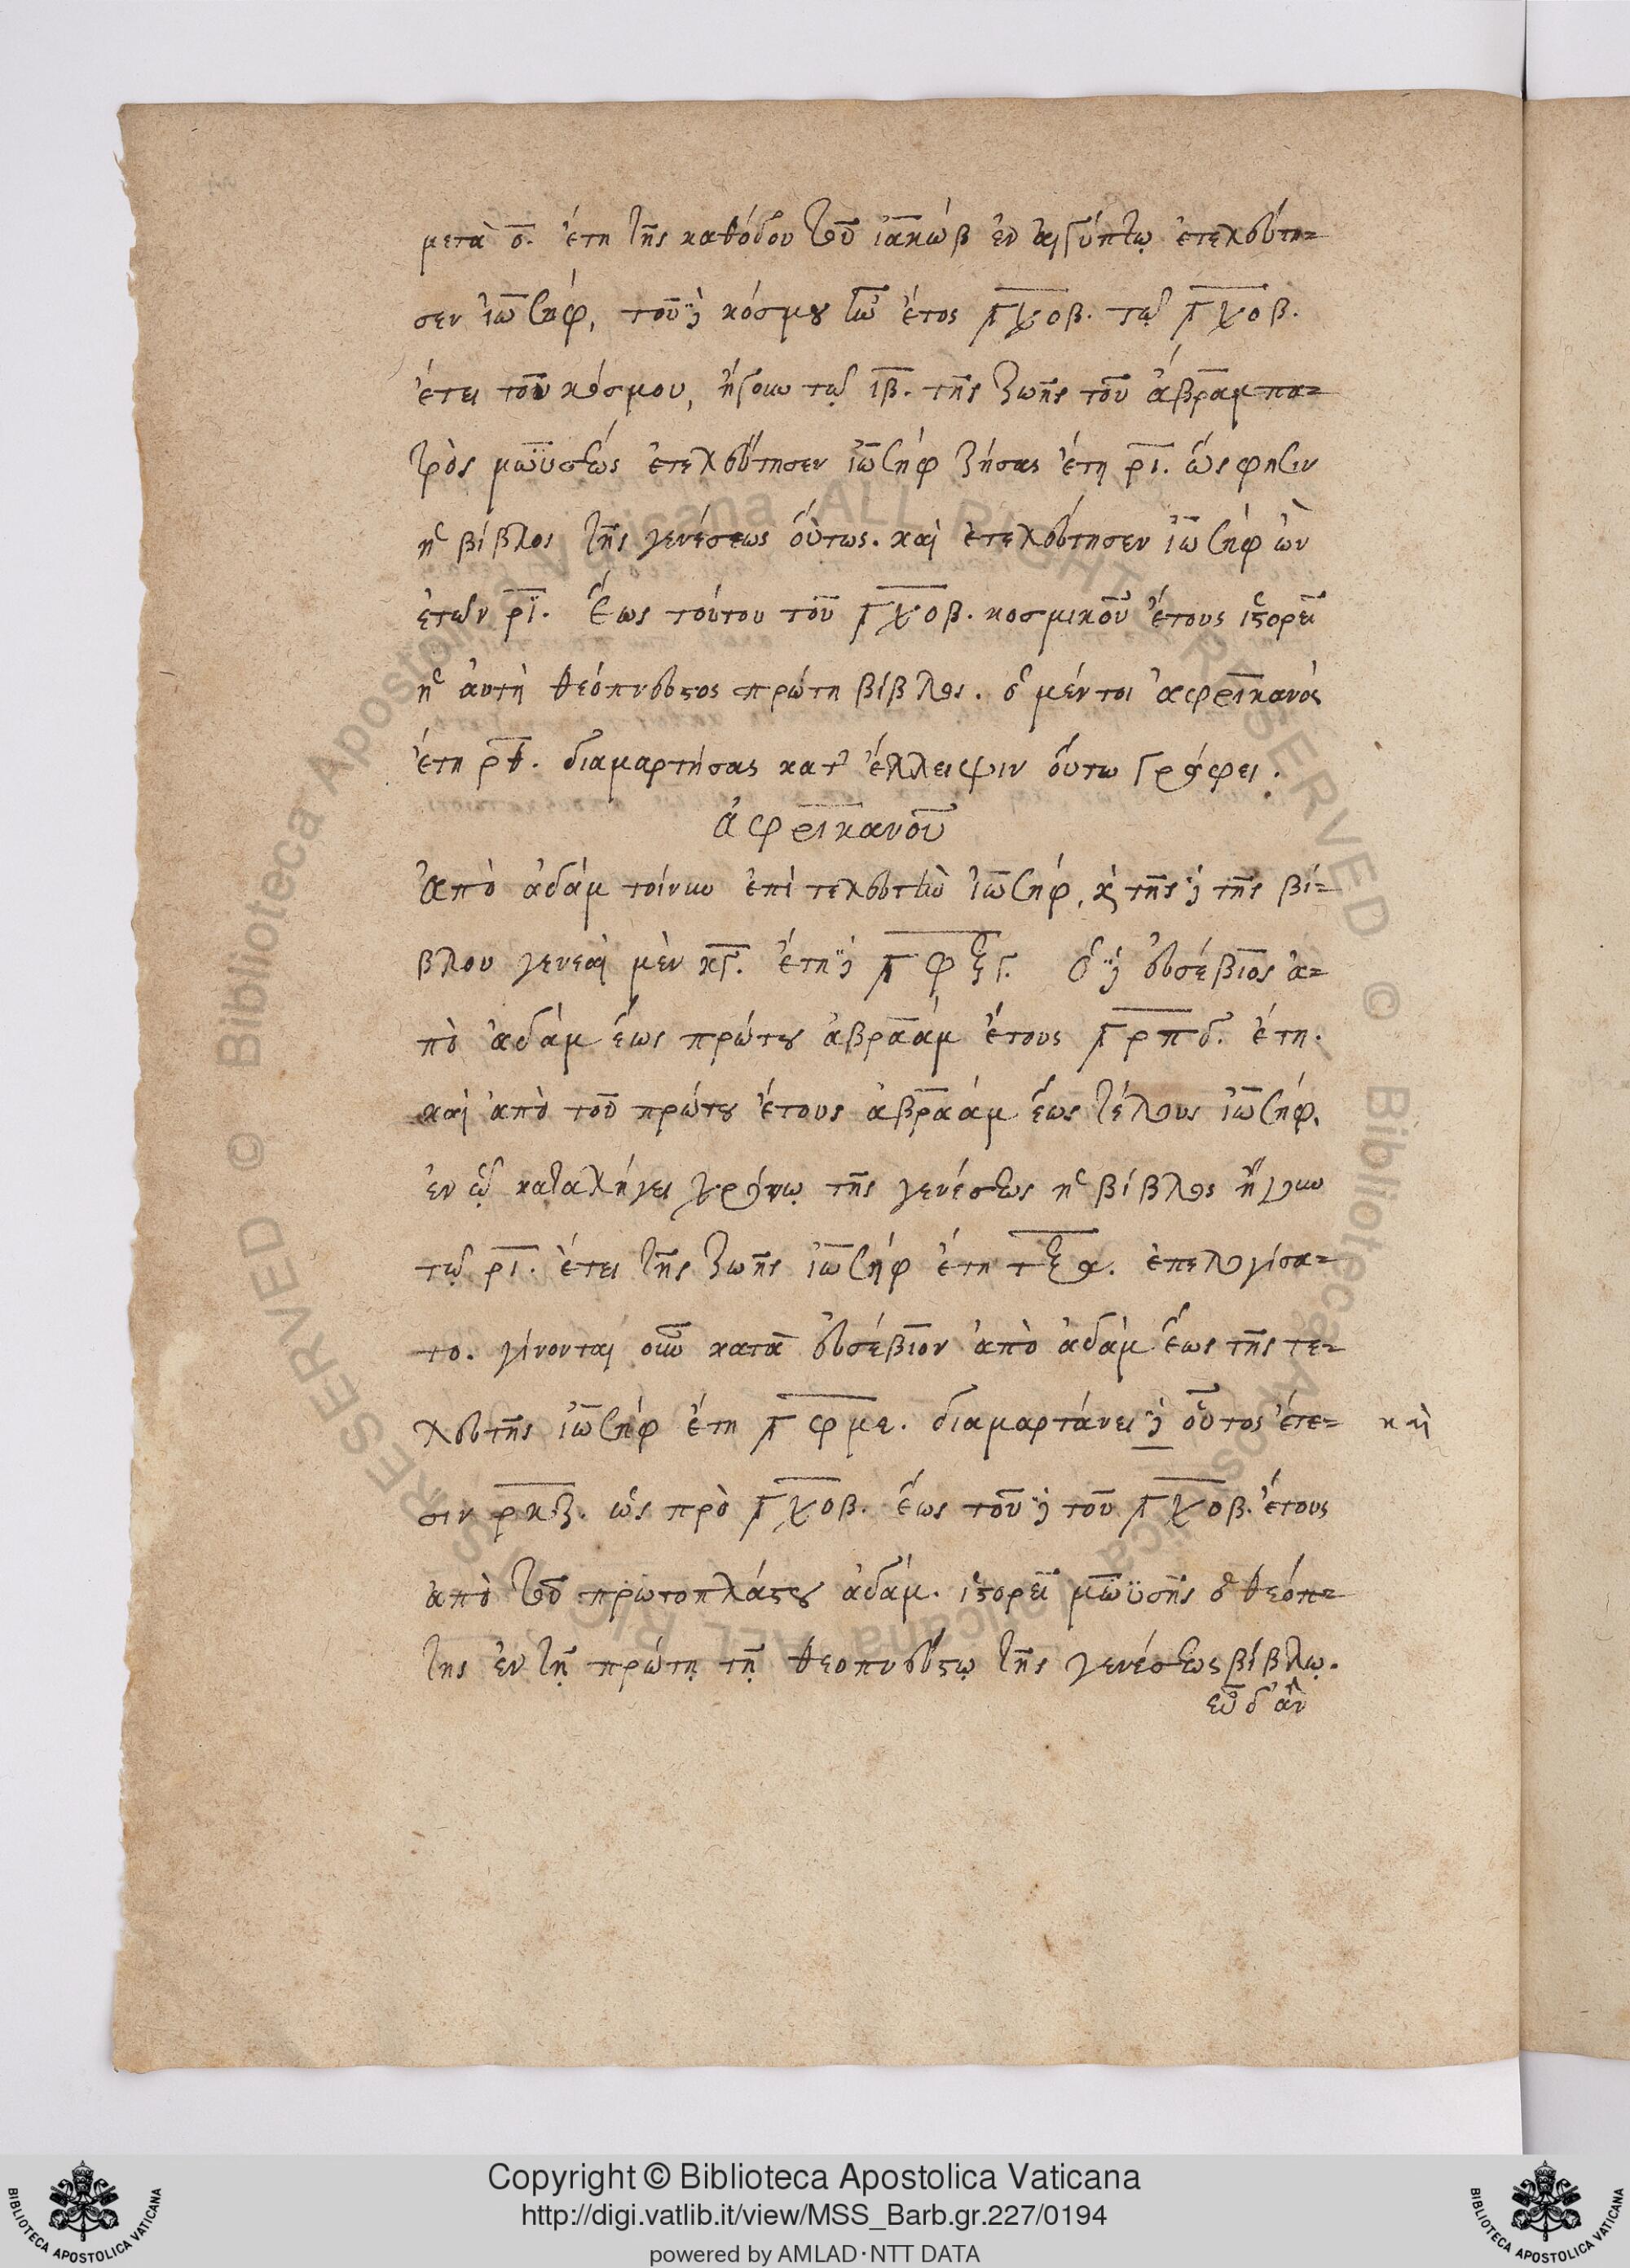 μετὰ ο̅. ἔτη τῆς καθόδου τοῦ ἰακὼβ ἐν αἰγύπτῳ ἐτελεύτη-
σεν ἰωσήφ, τοῦ δὲ κόσμου ἦν ἔτος ͵γχοβ. τῷ ͵γχοβ.
ἔτει τοῦ κόσμου, ἤγουν τῷ ιβ. τῆς ζωῆς τοῦ ἀβραμ πα-
τρὸς μωϋσέως ἐτελεύτησεν ἰωσὴφ ζήσας ἔτη ρι. ὥς φησιν
ἡ βίβλος τῆς γενέσεως οὕτως. καὶ ἐτελεύτησεν ἰωσὴφ ὢν
ἐτῶν ρι. ἕως τούτου τοῦ ͵γχοβ. κοσμικοῦ ἔτους ἱστορεῖ
ἡ αὐτὴ θεόπνευστος πρώτη βίβλος. ὁ μέντοι ἀφρικανὸς
ἔτη ρθ. διαμαρτήσας κατ' ἔλλειψιν οὕτω γράφει.
ἀφρικανοῦ
ἀπὸ ἀδὰμ τοίνυν ἐπὶ τελευτὴν ἰωσήφ, καὶ τῆς δὲ τῆς βί-
βλου γενεαὶ μὲν κγ. ἔτη δὲ ͵γφξγ. ὁ δὲ εὐσέβιος ἀ-
πὸ ἀδὰμ ἕως πρώτου ἀβραὰμ ἔτους ͵γρπδ. ἔτη.
καὶ ἀπὸ τοῦ πρώτου ἔτους ἀβραὰμ ἕως τέλους ἰωσήφ.
ἐν ᾧ καταλήγει χρόνῳ τῆς γενέσεως ἡ βίβλος ἤγουν
τῷ ρι. ἔτει τῆς ζωῆς ἰωσὴφ ἔτη τξα. ἐπελογίσα-
το. γίνονται οὖν κατὰ εὐσέβιον ἀπὸ ἀδὰμ ἕως τῆς τε-
λευτῆς ἰωσὴφ ἔτη ͵γφμε. διαμαρτάνει δὲ οὗτος ἔτε- καὶ
σιν ρκζ. ὡς πρὸ ͵γχοβ. ἕως τοῦ δὲ τοῦ ͵γχοβ. ἔτους
ἀπὸ τοῦ πρωτοπλάστου ἀδάμ. ἱστορεῖ μωϋσῆς ὁ θεόπ-
της ἐν τῇ πρώτῃ τῇ θεοπνεύστῳ τῆς γενέσεως βίβλῳ.
εὖ δ' ἂν
Copyright © Biblioteca Apostolica Vaticana
http://digi.vatlib.it/view/MSS_Barb.gr.227/0194
powered by AMLAD·NTT DATA